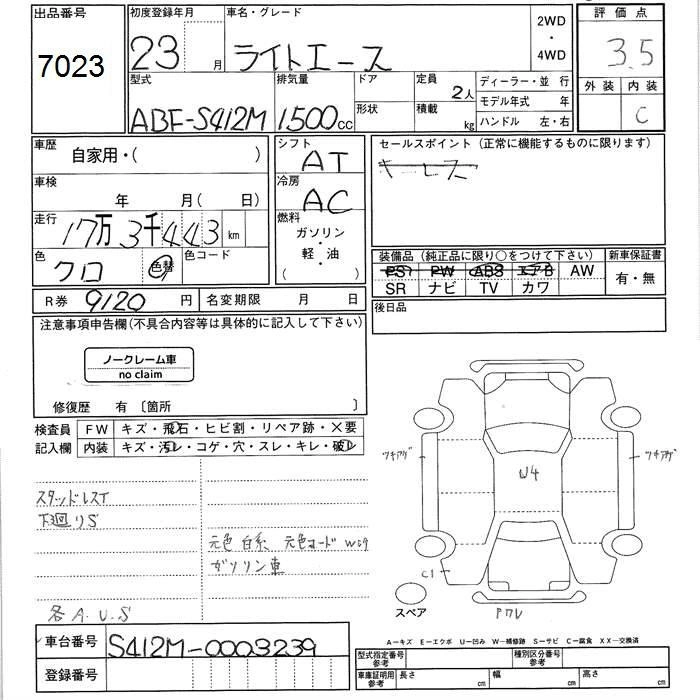 出品番号
7023
初度登録年月
23 月
車名・グレード
ライトエース
2WD
・
4WD
評価点
3.5
外装 内装
C
型式
ABF-S412M
排気量
1500cc
ドア
形状
定員
2人
積載
kg
ディーラー・並 行
モデル年式 年
ハンドル 左・右
車歴
自家用・( )
車検
年 月( 日)
走行
17万3千443km
色
クロ
色替
色コード
シフト
AT
冷房
AC
燃料
ガソリン
・
軽・油
( )
セールスポイント(正常に機能するものに限ります)
キーレス
装備品(純正品に限り○をつけて下さい)
PS PW ABS エアB AW
SR ナビ TV カワ
新車保証書
有・無
後日品
R券 9120円
名変期限 月 日
注意事項申告欄(不具合内容等は具体的に記入して下さい)
ノークレーム車
no claim
修復歴 有〔箇所 〕
検査員
記入欄
FW キズ・飛石・ヒビ割・リペア跡・×要
内装 キズ・汚レ・コゲ・穴・スレ・キレ・破レ
スタッドレスT
下廻りS
元色 白系 元色コード W09
ガソリン車
各A.U.S
ツキアゲ
W4
ツキアゲ
C1
スペア
Pワレ
A-キズ E-エクボ U-凹み W-補修跡 S-サビ C-腐食 XX-交換済
車台番号 S412M-0003239
登録番号
型式指定番号
参考
種別区分番号
参考
車庫証明用
参考
長さ cm
幅 cm
高さ cm